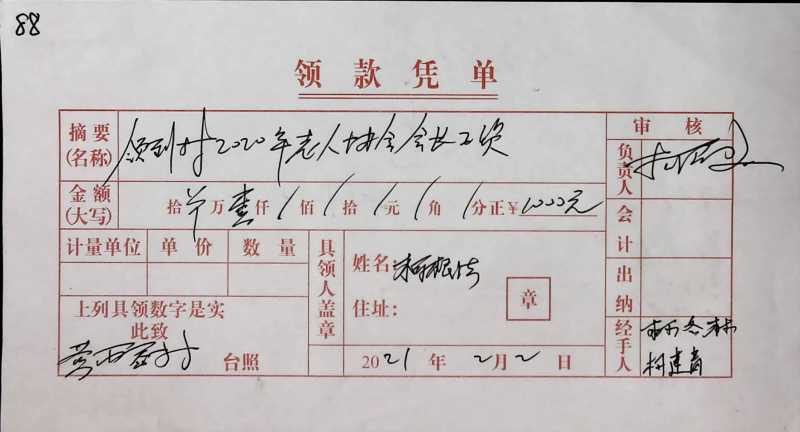 88
领款凭单
摘要(名称) 领到村2020年老人协会会长工资
审核
负责人
金额(大写) 拾 万壹仟 / 佰 / 拾 / 元 / 角 / 分正¥ 1000元
会计
计量单位 单价 数量
具领人盖章
姓名: 柯根
住址:
章
出纳
上列具领数字是实
此致
营西 村 台照
2021年2月2日
经手人
柯建